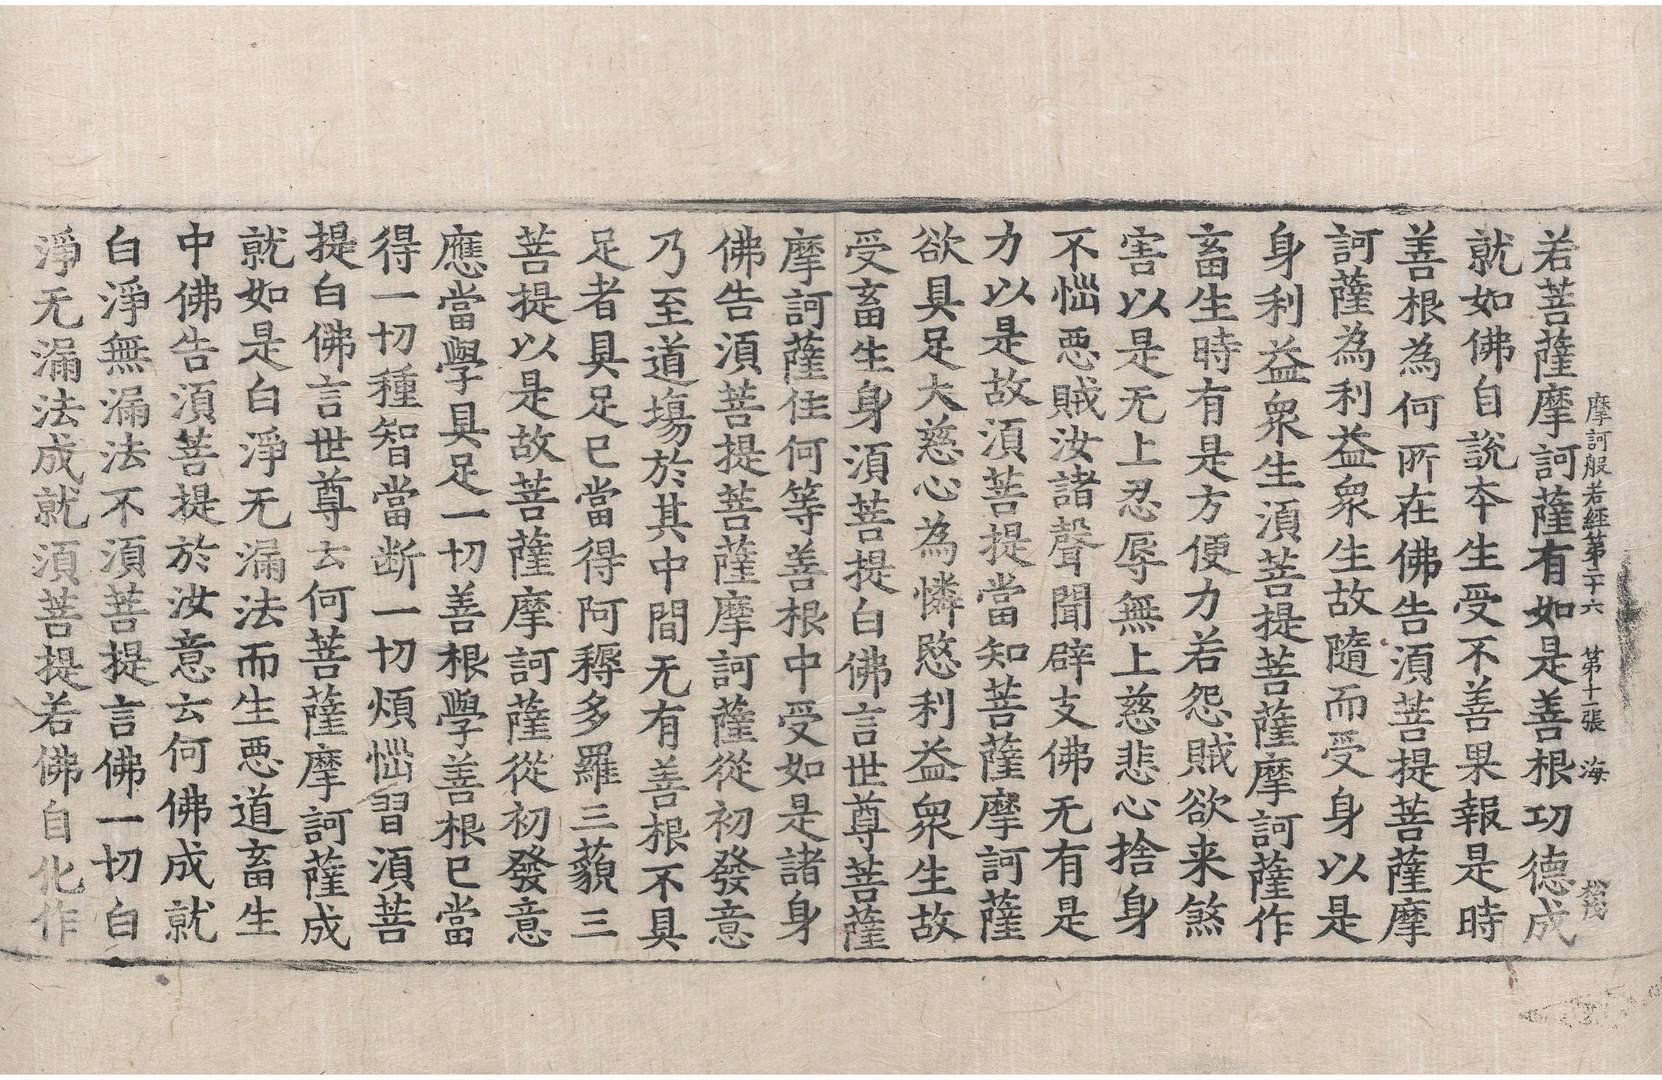 摩訶般若經第二十六 第十一張 海
若菩薩摩訶薩有如是善根功德成
就如佛自說夲生受不善果報是時
善根為何所在佛告湏菩提菩薩摩
訶薩為利益衆生故隨而受身以是
身利益衆生湏菩提菩薩摩訶薩作
畜生時有是方便力若怨賊欲来煞
害以是无上忍辱無上慈悲心捨身
不惱惡賊汝諸聲聞辟支佛无有是
力以是故湏菩提當知菩薩摩訶薩
欲具足大慈心為憐愍利益衆生故
受畜生身湏菩提白佛言世尊菩薩
摩訶薩住何等善根中受如是諸身
佛告湏菩提菩薩摩訶薩從初發意
乃至道場於其中間无有善根不具
足者具足已當得阿耨多羅三藐三
菩提以是故菩薩摩訶薩從初發意
應當學具足一切善根學善根已當
得一切種智當断一切煩惱習湏菩
提白佛言世尊云何菩薩摩訶薩成
就如是白淨无漏法而生惡道畜生
中佛告湏菩提於汝意云何佛成就
白淨無漏法不湏菩提言佛一切白
淨无漏法成就湏菩提若佛自化作